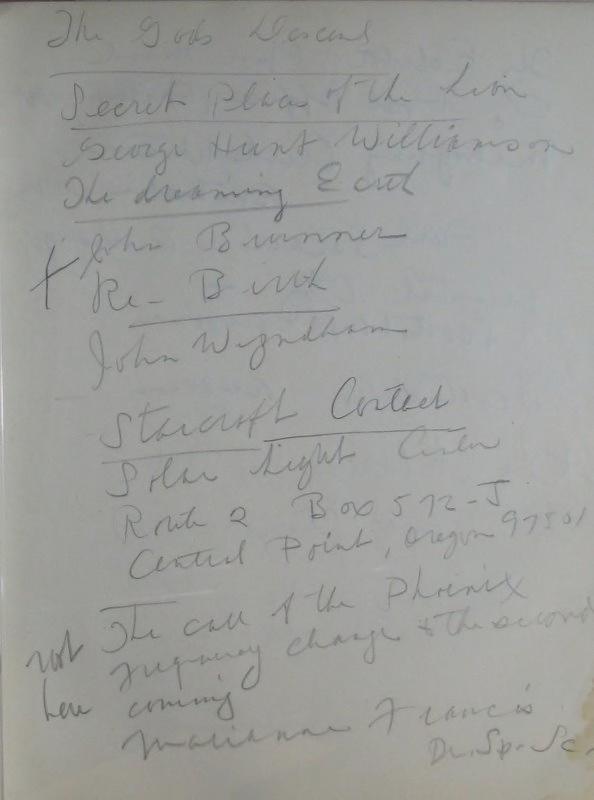 The Gods Descend
Secret Places of the Lion
George Hunt Williamson
The dreaming Earth
John Brunner
+ Re-Birth
John Wyndham
Starcraft Contact
Solar Light Center
Route 2 Box 572-J
Central Point, Oregon 97501
not The call of the Phoenix
frequency change & the second
here coming
Marianne Francis
Dr. Sp. Sc.